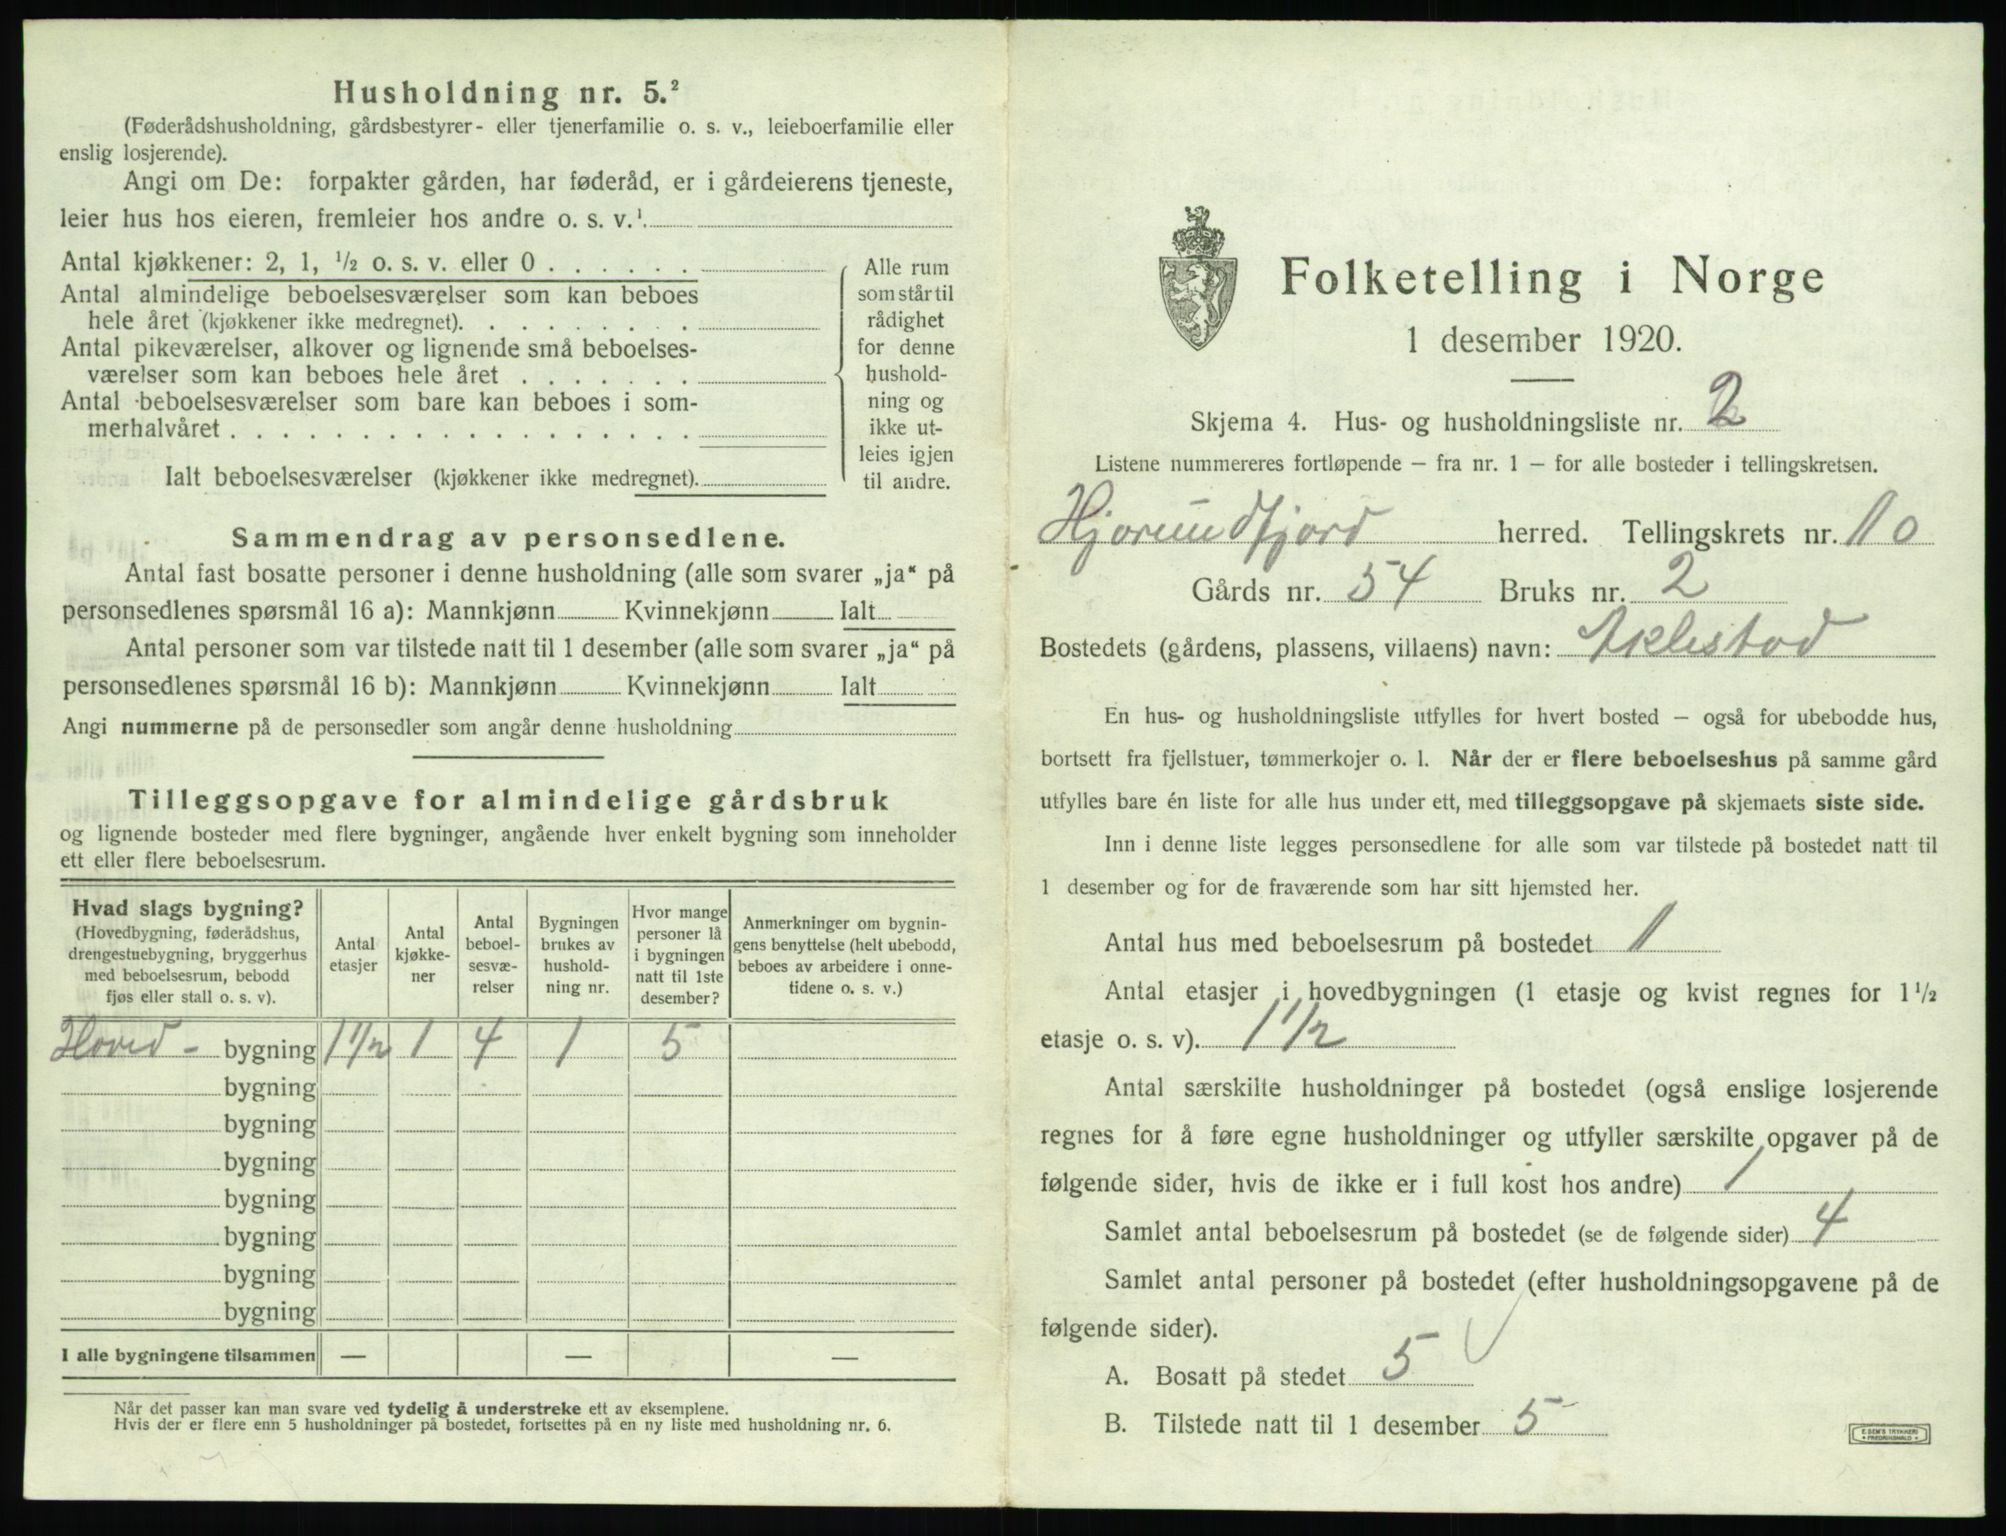 Husholdning nr. 5.²
(Føderådshusholdning, gårdsbestyrer- eller tjenerfamilie o. s. v., leieboerfamilie eller
enslig losjerende).
Angi om De: forpakter gården, har føderåd, er i gårdeierens tjeneste,
leier hus hos eieren, fremleier hos andre o. s. v.¹
Antal kjøkkener: 2, 1, ½ o. s. v. eller 0 . . . . . .
Antal almindelige beboelsesværelser som kan beboes
hele året (kjøkkener ikke medregnet). . . . . . . . .
Antal pikeværelser, alkover og lignende små beboelses-
værelser som kan beboes hele året . . . . . . .
Antal beboelsesværelser som bare kan beboes i som-
merhalvåret . . . . . . . . . . . . . . . . . .
Ialt beboelsesværelser (kjøkkener ikke medregnet).
Alle rum
som står til
rådighet
for denne
hushold-
ning og
ikke ut-
leies igjen
til andre.
Sammendrag av personsedlene.
Antal fast bosatte personer i denne husholdning (alle som svarer „ja“ på
personsedlenes spørsmål 16 a): Mannkjønn Kvinnekjønn Ialt
Antal personer som var tilstede natt til 1 desember (alle som svarer „ja“ på
personsedlenes spørsmål 16 b): Mannkjønn Kvinnekjønn Ialt
Angi nummerne på de personsedler som angår denne husholdning
Tilleggsopgave for almindelige gårdsbruk
og lignende bosteder med flere bygninger, angående hver enkelt bygning som inneholder
ett eller flere beboelsesrum.
Hvad slags bygning?
(Hovedbygning, føderådshus,
drengestuebygning, bryggerhus
med beboelsesrum, bebodd
fjøs eller stall o. s. v).
Antal
etasjer
Antal
kjøkke-
ner
Antal
beboel-
sesvæ-
relser
Bygningen
brukes av
hushold-
ning nr.
Hvor mange
personer lå
i bygningen
natt til 1ste
desember?
Anmerkninger om bygnin-
gens benyttelse (helt ubebodd,
beboes av arbeidere i onne-
tidene o. s. v.)
Hoved- bygning 1½ 1 4 1 5
bygning
bygning
bygning
bygning
bygning
bygning
bygning
I alle bygningene tilsammen — — —
Når det passer kan man svare ved tydelig å understreke ett av eksemplene.
Hvis der er flere enn 5 husholdninger på bostedet, fortsettes på en ny liste med husholdning nr. 6.
Folketelling i Norge
1 desember 1920.
Skjema 4. Hus- og husholdningsliste nr. 2
Listene nummereres fortløpende — fra nr. 1 — for alle bosteder i tellingskretsen.
Hjorundfjord herred. Tellingskrets nr. 10
Gårds nr. 54 Bruks nr. 2
Bostedets (gårdens, plassens, villaens) navn: Aklestad
En hus- og husholdningsliste utfylles for hvert bosted — også for ubebodde hus,
bortsett fra fjellstuer, tømmerkojer o. l. Når der er flere beboelseshus på samme gård
utfylles bare én liste for alle hus under ett, med tilleggsopgave på skjemaets siste side.
Inn i denne liste legges personsedlene for alle som var tilstede på bostedet natt til
1 desember og for de fraværende som har sitt hjemsted her.
Antal hus med beboelsesrum på bostedet 1
Antal etasjer i hovedbygningen (1 etasje og kvist regnes for 1½
etasje o. s. v). 1½
Antal særskilte husholdninger på bostedet (også enslige losjerende
regnes for å føre egne husholdninger og utfyller særskilte opgaver på de
følgende sider, hvis de ikke er i full kost hos andre) 1
Samlet antal beboelsesrum på bostedet (se de følgende sider) 4
Samlet antal personer på bostedet (efter husholdningsopgavene på de
følgende sider).
A. Bosatt på stedet 5
B. Tilstede natt til 1 desember 5
E. SEM'S TRYKKERI
FREDRIKSHALD